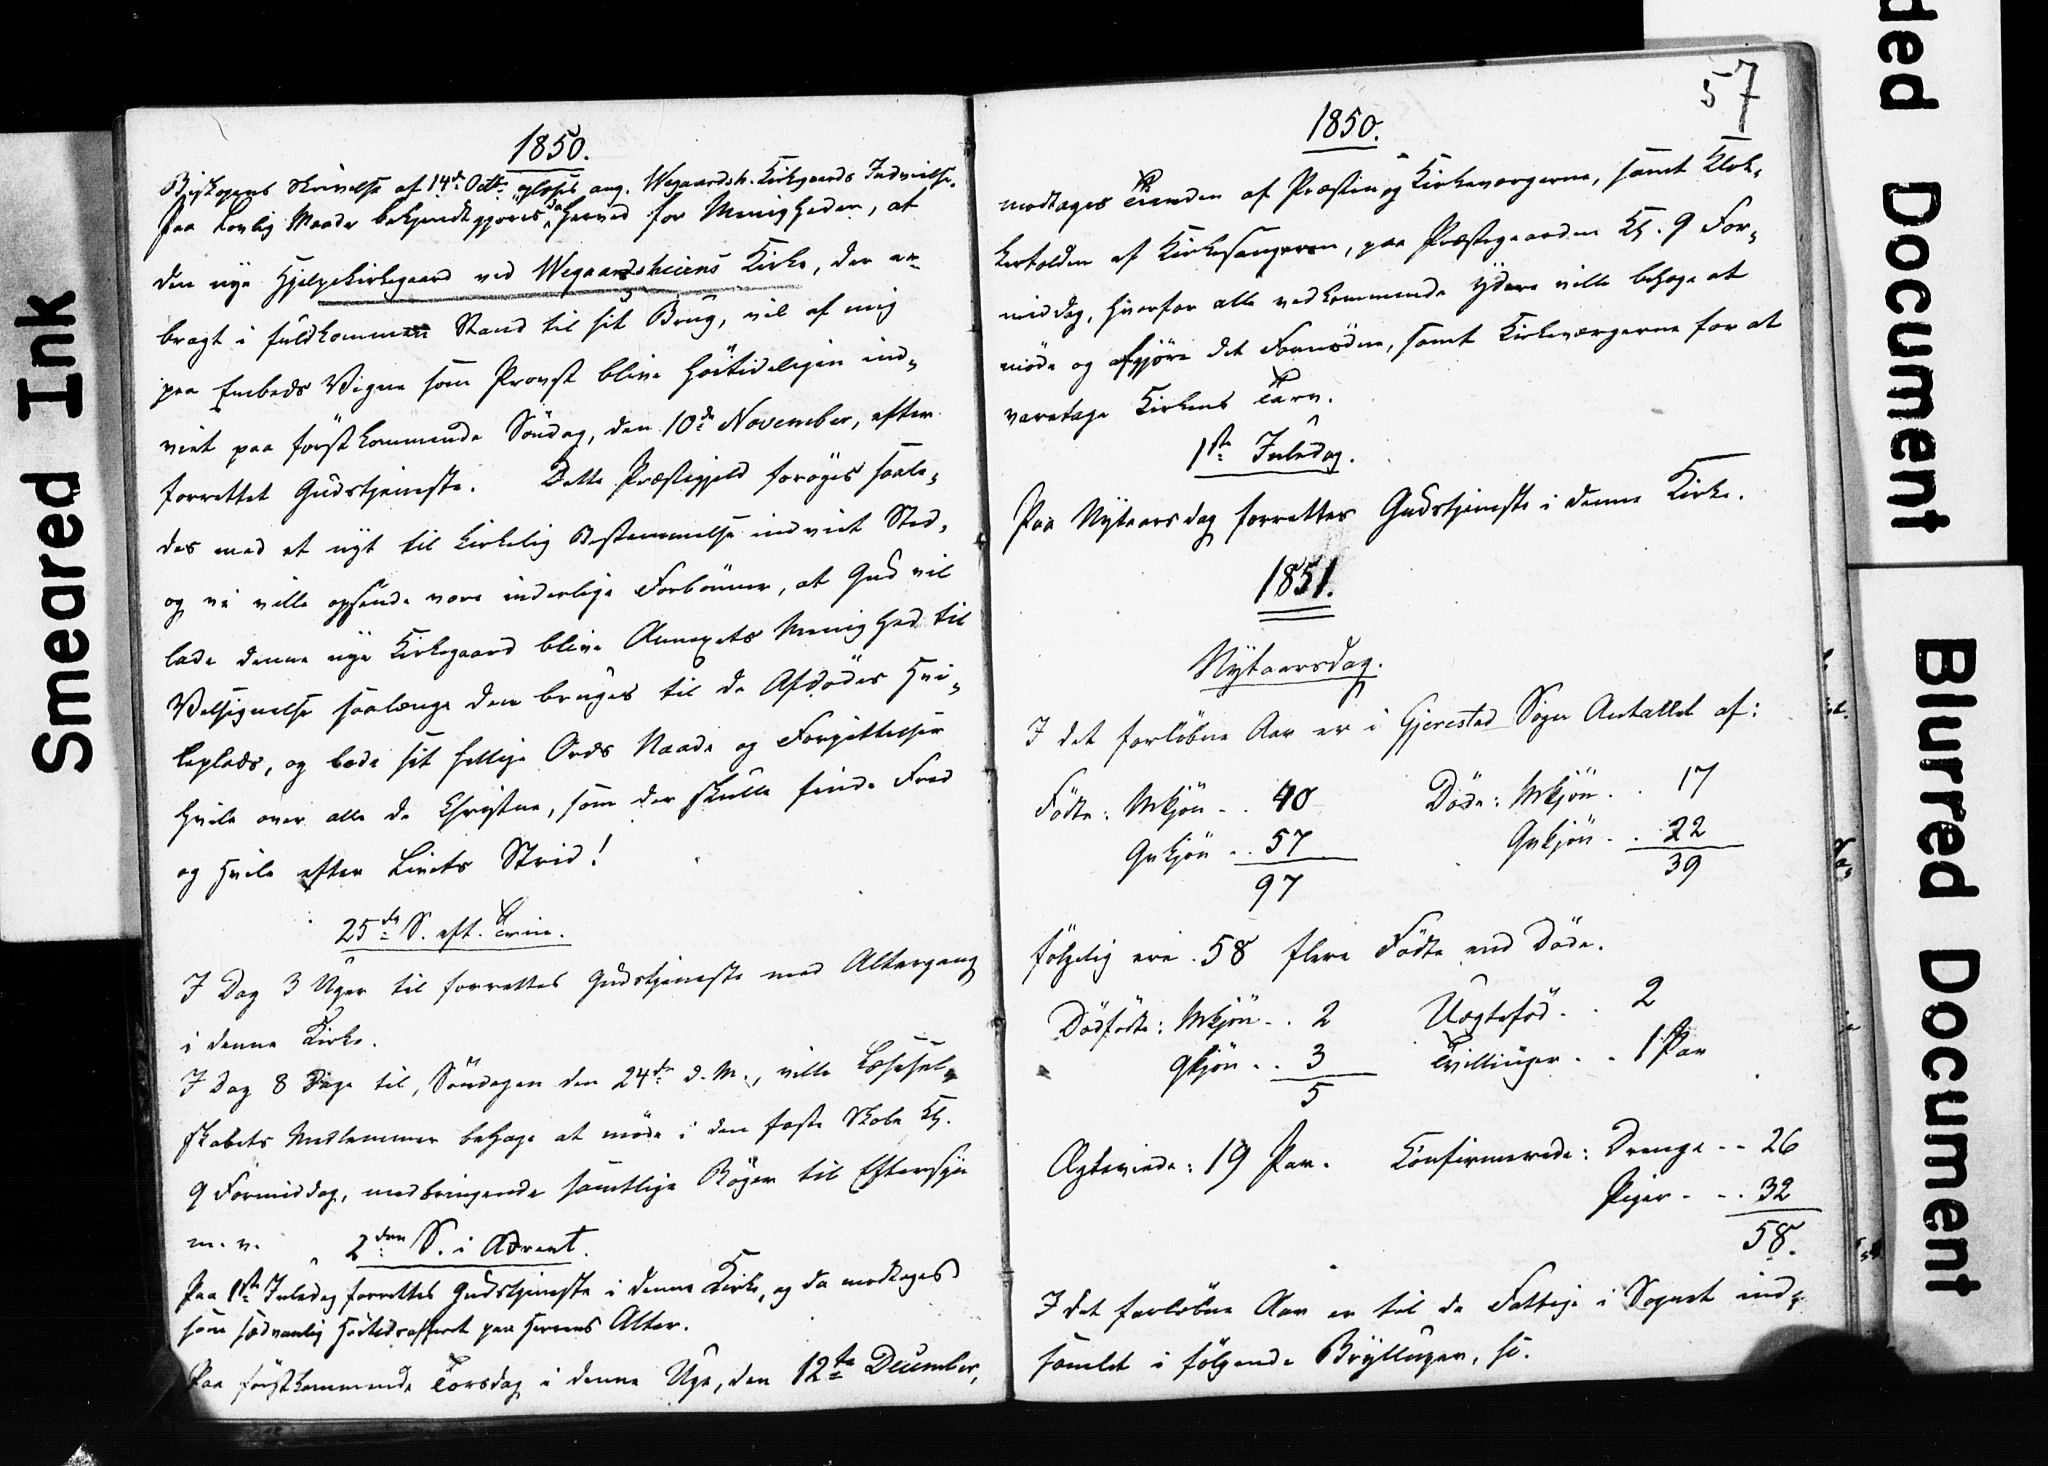 Smeared Ink
1850.
Biskopens Skrivelse af 14de Octb. oplæses ang. Wegaardsh. Kirkegaards Indvielse.
Paa lovlig Maade bekjendtgjøres da herved for Menigheden, at
den nye Hjelpekirkegaard ved Wegaardsheiens Kirke, der er
bragt i fuldkommen Stand til sit Brug, vil af mig
paa Embeds Vegne som Provst blive høitideligen ind-
viet paa førstkommende Søndag, den 10de November, efter
forrettet Gudstjeneste. Dette Præstegjeld forøges saale-
des med et nyt til kirkelig Bestemmelse indviet Sted,
og vi ville opsende vore inderlige Forbønner, at Gud vil
lade denne nye Kirkegaard blive Annexets Menighed til
Velsignelse saalænge den bruges til de Afdødes Hvi-
leplads, og lade sit hellige Ords Naade og Forjættelser
hvile over alle de Christne, som der skulle finde Fred
og Hvile efter Livets Strid!
25de S. eft. Trin.
I Dag 3 Uger til forrettes Gudstjeneste med Altergang
i denne Kirke.
I Dag 8 Dage til, Søndagen den 24de d. M., ville Læsesel-
skabets Medlemmer behage at møde i den faste Skole Kl.
9 Formiddag, medbringende samtlige Bøger til Eftersyn
m. v.
2den S. i Advent.
Paa 1ste Juledag forrettes Gudstjeneste i denne Kirke, og da modtages
som sædvanlig Høitidsofferet paa Herrens Alter.
Paa førstkommende Torsdag i denne Uge, den 12te December,
57
1850.
modtages Tienden af Præsten og Kirkeværgerne, samt Klok-
kertolden af Kirkesangeren, paa Præstegaarden Kl. 9 For-
middag, hvorfor alle vedkommende Ydere ville behage at
møde og afgjøre det Fornødne, samt Kirkeværgerne for at
varetage Kirkens Tarv.
1ste Juledag.
Paa Nytaarsdag forrettes Gudstjeneste i denne Kirke.
1851.
Nytaarsdag.
I det forløbne Aar er i Gjerestad Sogn Antallet af:
Fødte: Mkjøn . . 40 Døde: Mkjøn . . 17
Qvkjøn . . 57 Qvkjøn . . 22
97 39
følgelig ere 58 flere Fødte end Døde.
Dødfødte: Mkjøn . . 2 Uægtefød. . . 2
Qkjøn . . 3 Tvillinger . . 1 Par
5
Ægteviede: 19 Par. Confirmerede: Drenge . . 26
Piger . . . 32
58.
I det forløbne Aar er til de Fattige i Sognet ind-
samlet i følgende Brylluper, s.
ded Document
Blurred Document